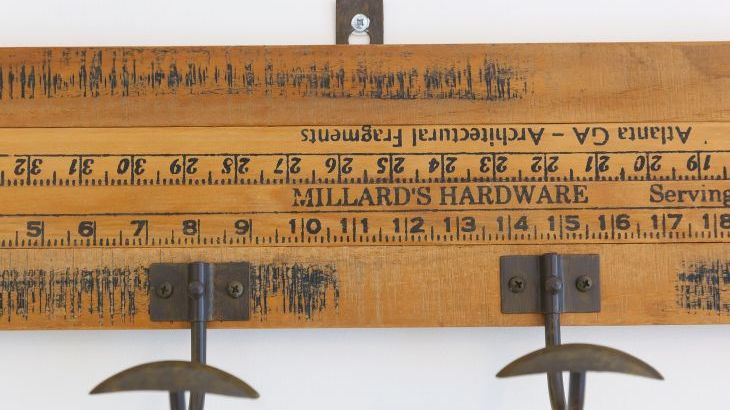 Atlanta GA - Architectural Fragments
32 31 30 29 28 27 26 25 24 23 22 21 20 19
MILLARD'S HARDWARE Serving
5 6 7 8 9 10 11 12 13 14 15 16 17 18